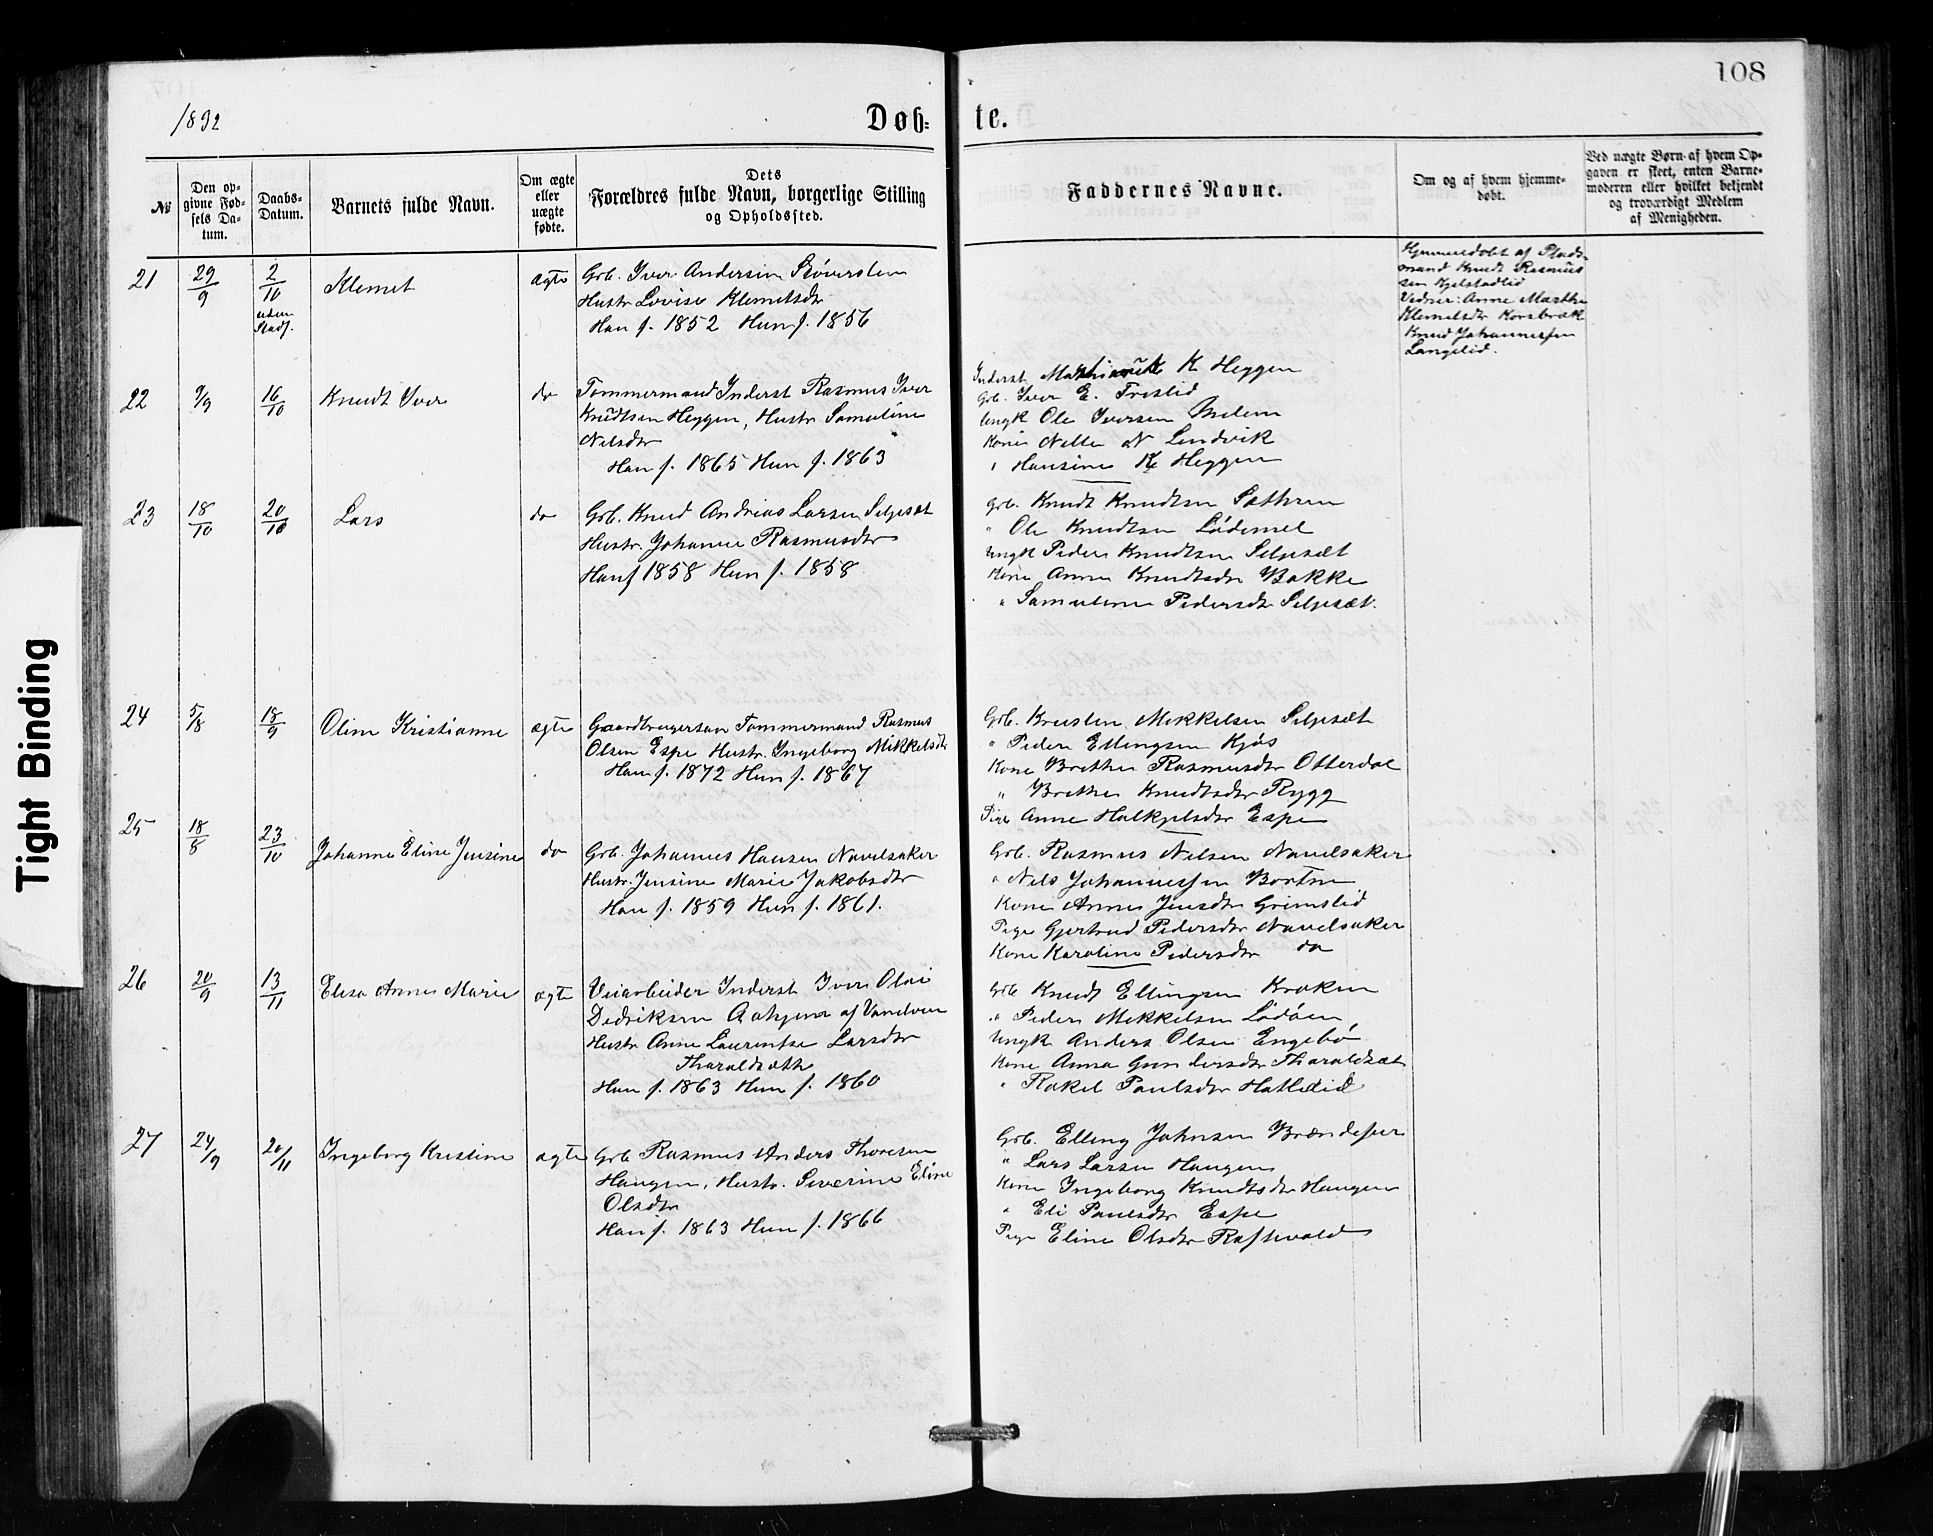 108
1892
Døb-
te.
№
Den op-
givne Fød-
sels Da-
tum.
Daabs-
Datum.
Barnets fulde Navn.
Om ægte
eller
uægte
fødte.
Dets
Forældres fulde Navn, borgerlige Stilling
og Opholdssted.
Faddernes Navne.
Om og af hvem hjemme-
døbt.
Ved uægte Børn af hvem Op-
gaven er skeet, enten Barne-
moderen eller hvilket bekjendt
og troværdigt Medlem
af Menigheden.
21
29/9
2/10
uden
Stadf.
Klemet
ægte
Grb. Iver Andersen Støverstein
Hustr Lovise Klemetsdr
Han f. 1852 Hun f. 1856
Hjemmedøbt af Plads-
mand Knudt Rasmus
sen Kjelstadlid
Vidner: Anne Marthe
Klemetsdr Korsbræk
Knud Johannessen
Langelid.
22
9/9
16/10
Knudt Iver
do
Tømmermand Inderst Rasmus Iver
Knudtsen Heggen, Hustr Samuline
Nilsdr
Han f. 1865 Hun f. 1863
Inderst K Heggen
Grb. Iver E. Tristlid
Ungk Ole Iversen
Kone N Lendvik
" Hansine K Heggen
23
18/10
20/10
Lars
do
Grb. Knud Andrias Larsen Seljesæt
Hustr. Johanne Rasmusdr
Han f 1858 Hun f. 1858
Grb. Knudt Knudtsen Sæthren
" Ole Knudtsen Lødemel
Ungk Peder Knudtsen Seljesæt
Kone Anne Knudtsdr Bakke
" Samuline Pedersdr Seljesæt.
24
5/8
18/9
Oline Kristianne
ægte
Gaardbrugersøn Tømmermand Rasmus
Olsen Espe Hustr. Ingeborg Mikkelsdr
Han f. 1872 Hun f. 1867
Grb. Kristen Mikkelsen Seljesæt
" Peder Ellingsen Kjøs
Kone Brithe Rasmusdr Otterdal
" Brithe Knudtsdr Rygg
Pige Anne Halkjelsdr Espe
25
18/8
23/10
Johanne Eline Jensine
do
Grb. Johannes Hansen Navelsaker
Hustr. Jensine Marie Jakobsdr
Han f. 1859 Hun f. 1861.
Grb. Rasmus Nilsen Navelsaker
" Nils Johannessen Bortne
Kone Anne Jensdr Grimstid
Pige Gjertrud Pedersdr Navelsaker
Kone Karoline Pedersdr do
26
20/9
13/11
Elisa Anne Marie
ægte
Veiarbeider Inderst Iver Olai
Didriksen Aahjem af Vanelven
Hustr Anne Laurentse Larsdr
Tharaldsæth
Han f. 1863 Hun f. 1860
Grb Knudt Ellingsen Kroken
" Peder Mikkelsen Lødøen
Ungk Anders Olsen Engebø
Kone Anna Gundersdr Tharaldsæt
" Rakel Paulsdr Hatledid
27
24/9
20/11
Ingeborg Kristine
ægte
Grb Rasmus Anders Thoresen
Haugen, Hustr. Severine Eline
Olsdr
Han f. 1863 Hun f. 1866
Grb. Elling Johnsen
" Lars Larsen Haugen
Kone Ingeborg Knudtsdr Haugen
" Eli Paulsdr Espe
Pige Eline Olsdr Raftevold
Tight Binding